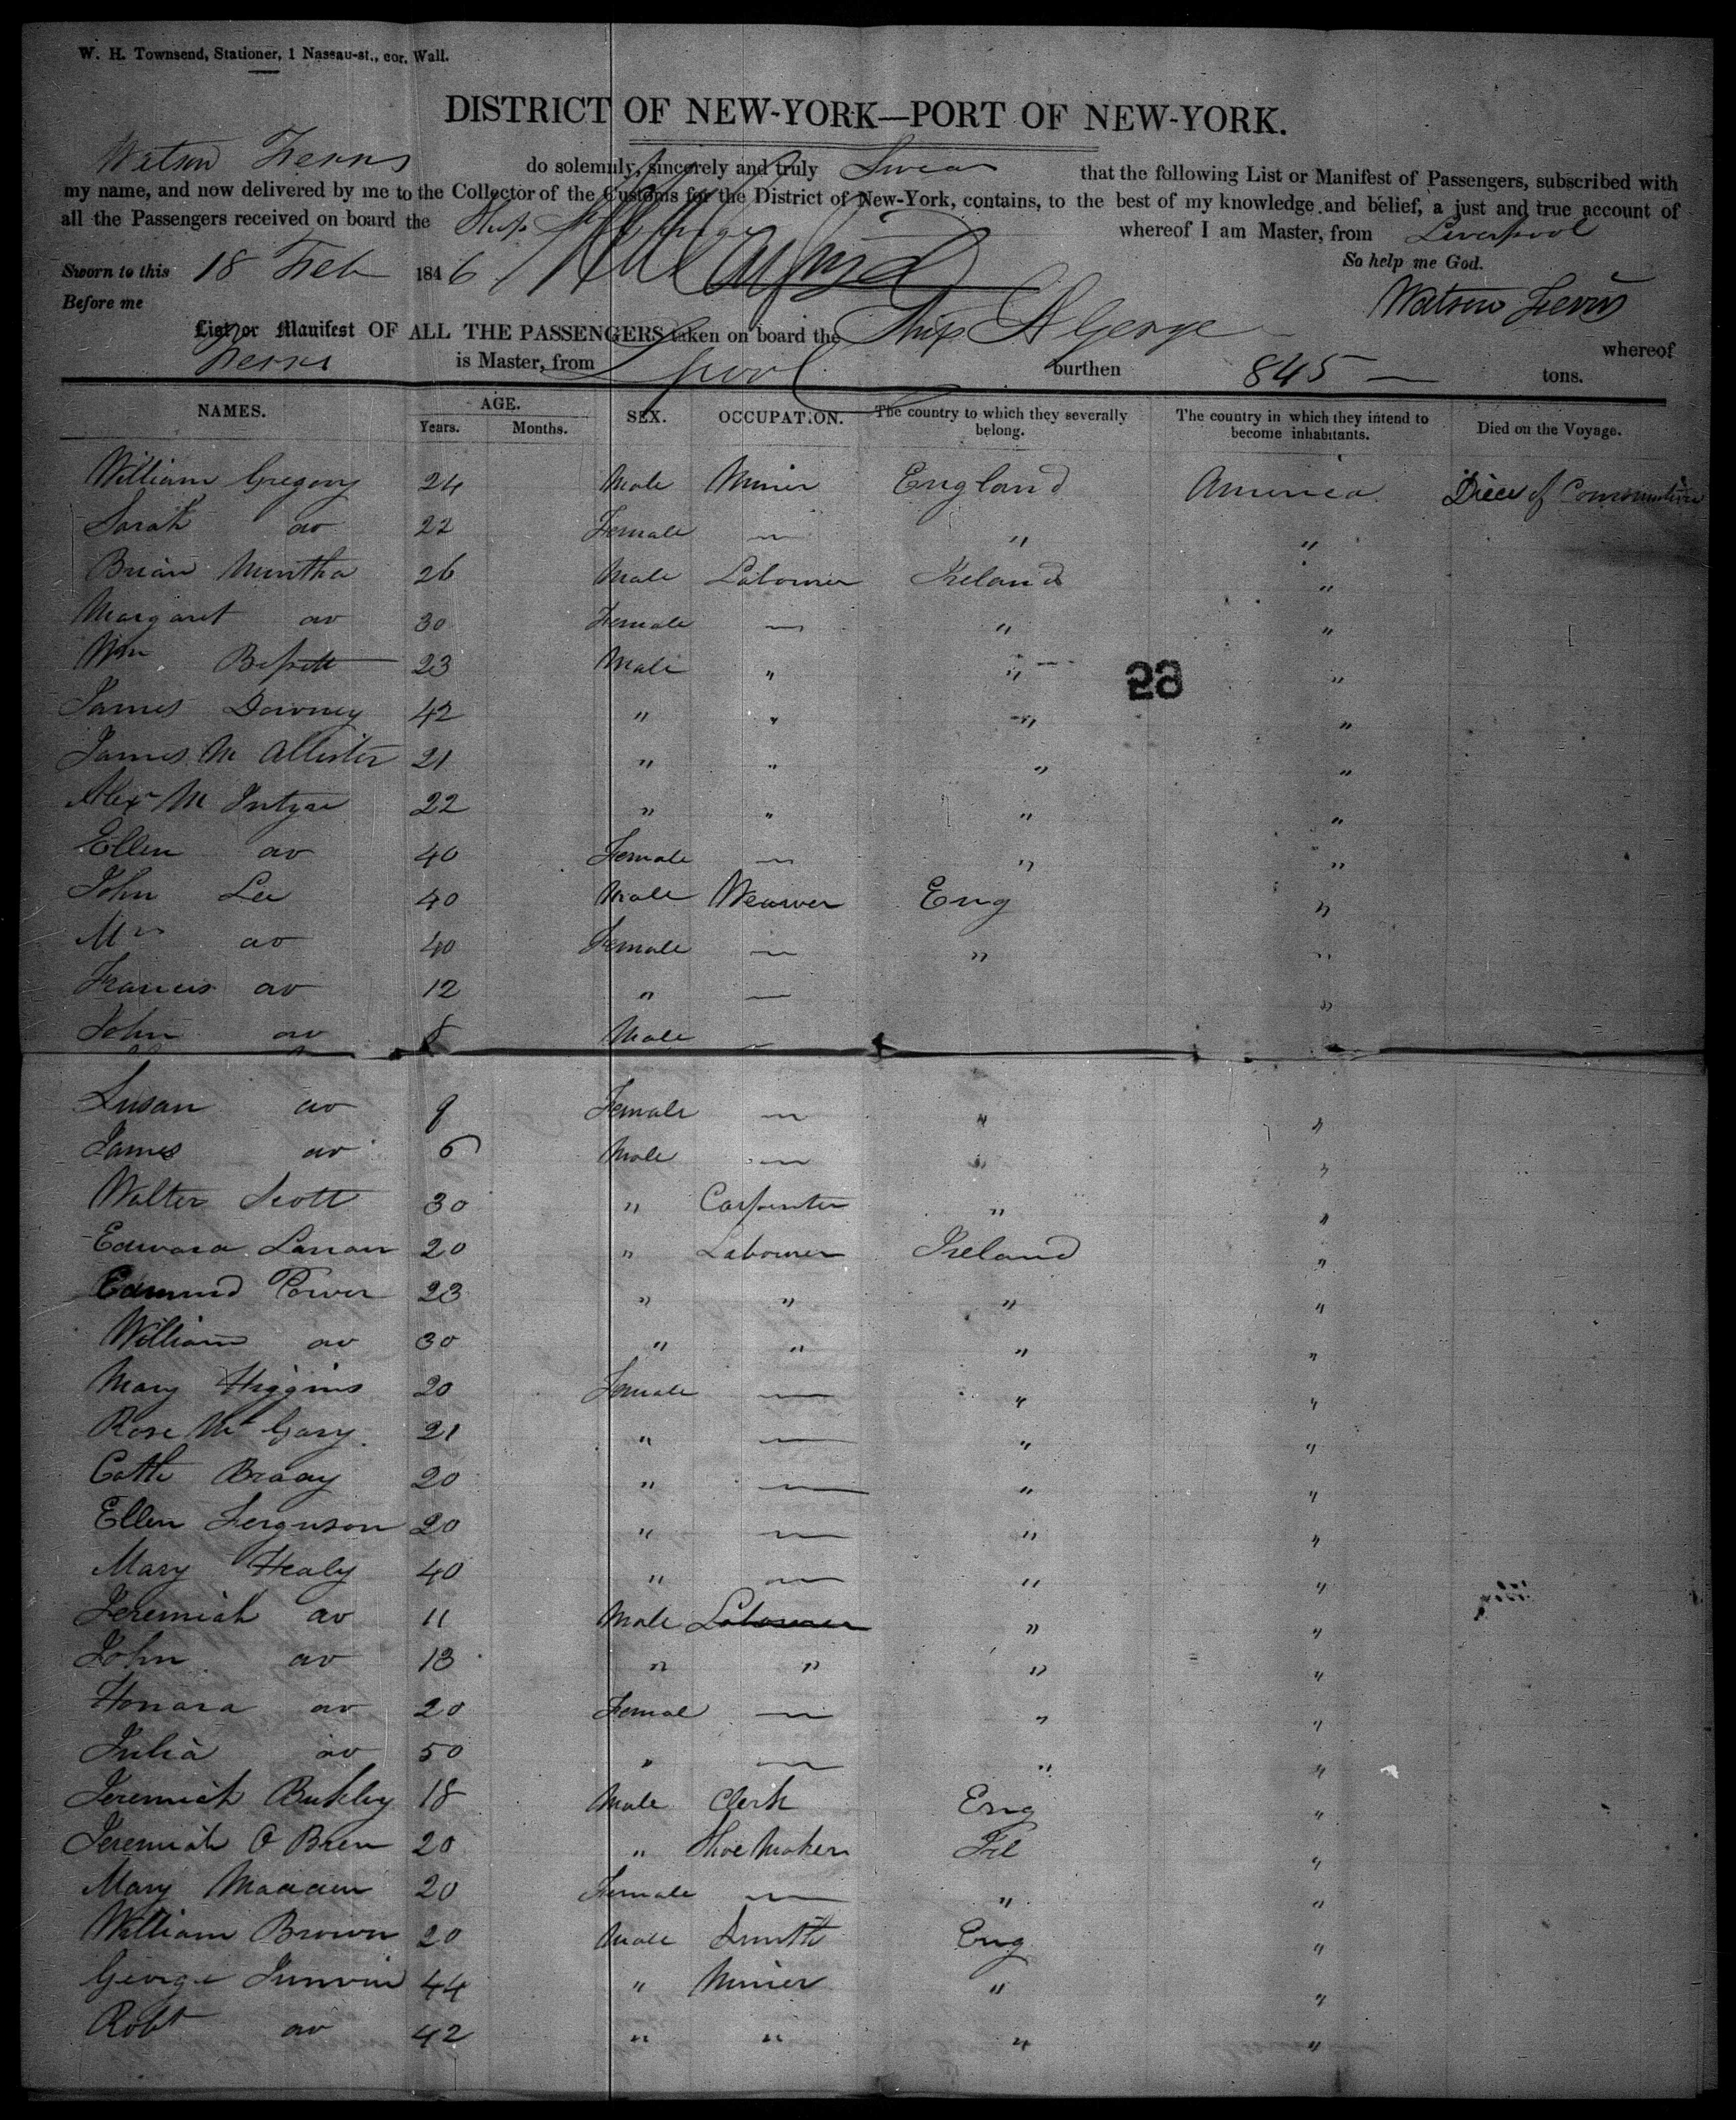 W. H. Townsend, Stationer, 1 Nassau-st., cor. Wall.
DISTRICT OF NEW-YORK—PORT OF NEW-YORK.
Watson Ferris do solemnly, sincerely and truly Swear that the following List or Manifest of Passengers, subscribed with
my name, and now delivered by me to the Collector of the Customs for the District of New-York, contains, to the best of my knowledge and belief, a just and true account of
all the Passengers received on board the Ship whereof I am Master, from Liverpool
Sworn to this 18 Feb 1846 So help me God.
Before me Watson Ferris
List or Manifest OF ALL THE PASSENGERS taken on board the Ship St George whereof
Ferris is Master, from Lpool burthen 845 — tons.
NAMES. AGE. SEX. OCCUPATION. The country to which they severally belong. The country in which they intend to become inhabitants. Died on the Voyage.
Years. Months.
William Gregory 24 Male Minier England America Died of Consumption
Sarah do 22 Female — " "
Brian Murtha 26 Male Labourer Ireland "
Margaret do 30 Female — " "
Wm 23 Male " " "
James Downey 42 " " " "
James M Allister 21 " " " "
Alexr M Intyre 22 " " " "
Ellen do 40 Female — " "
John Lee 40 Male Weaver Eng "
Mrs do 40 Female — " "
Francis do 12 " — "
John do 8 Male —
Susan do 9 Female — " "
James do 6 Male — " "
Walter Scott 30 " Carpenter " "
Edward 20 " Labourer Ireland "
Edmund Power 23 " " " "
William do 30 " " " "
Mary Higgins 20 Female — " "
Rose Mc Gary 21 " — " "
Cath Brady 20 " — " "
Ellen Ferguson 20 " — " "
Mary Healy 40 " — " "
Jeremiah do 11 Male Labourer " "
John do 13 " " " "
Honara do 20 Femal — " "
Julia do 50 " — " "
Jeremiah Bukley 18 Male Clerk Eng "
Jeremiah O Bren 20 " Shoe Maker Irl "
Mary Madden 20 Female — " "
William Brown 20 Male Smith Eng "
George 44 " Minier " "
Robt do 42 " " " "